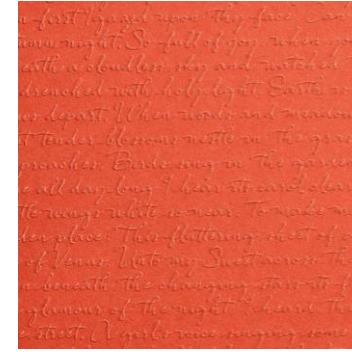 first I gazed upon thy face
night. So full of joy, when you
a cloudless sky and watched
drenched with holy light. Earth
depart. When woods and meadow
Tender blossoms nestle in the gras
proaches. Birds sing in the garden
all day long I hear its carol clear
wings white so near. To make m
place: This fluttering sheet of
of Venus. Unto my Sweet across the
beneath the changing stars
glamour of the night I heard the
street. A girl's voice singing some